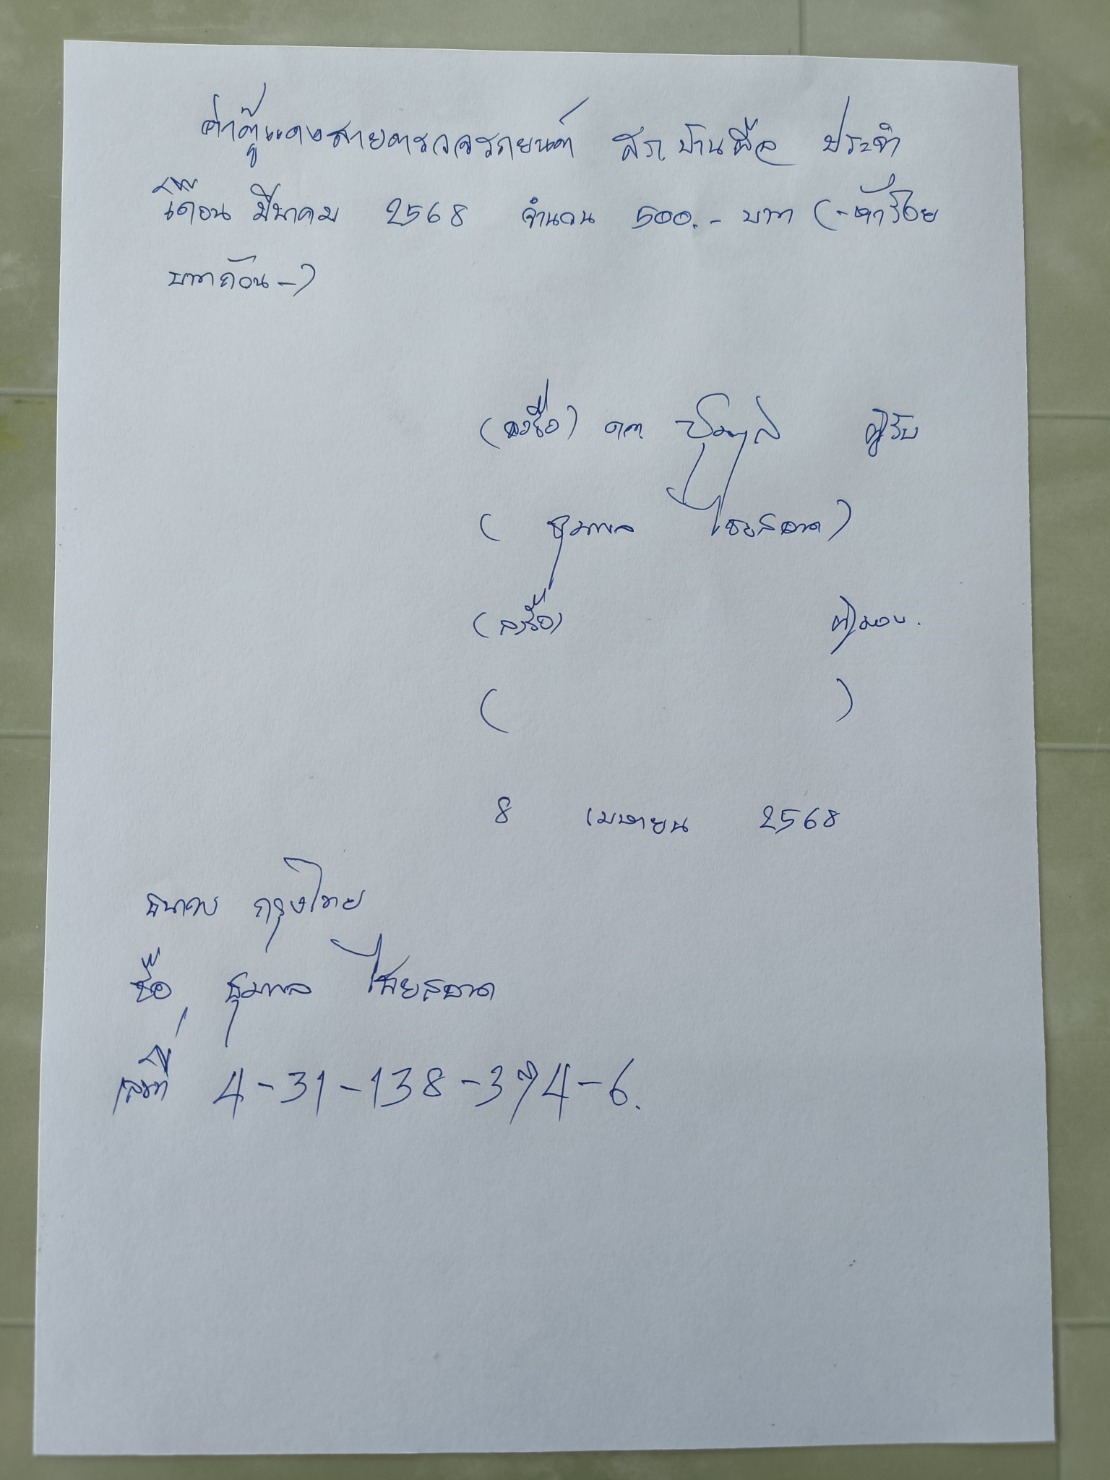 ค่าตู้แดงสายตรวจรถยนต์ สภ.บ้านผือ ประจำ
เดือน มีนาคม 2568 จำนวน 500.- บาท (-ห้าร้อย
บาทถ้วน-)
(ลงชื่อ) ดต. ผู้รับ
( ชุมพล ไชยสอาด )
(ลงชื่อ) ผู้มอบ.
( )
8 เมษายน 2568
ธนาคาร กรุงไทย
ชื่อ ชุมพล ไชยสอาด
เลขที่ 4-31-138-374-6.